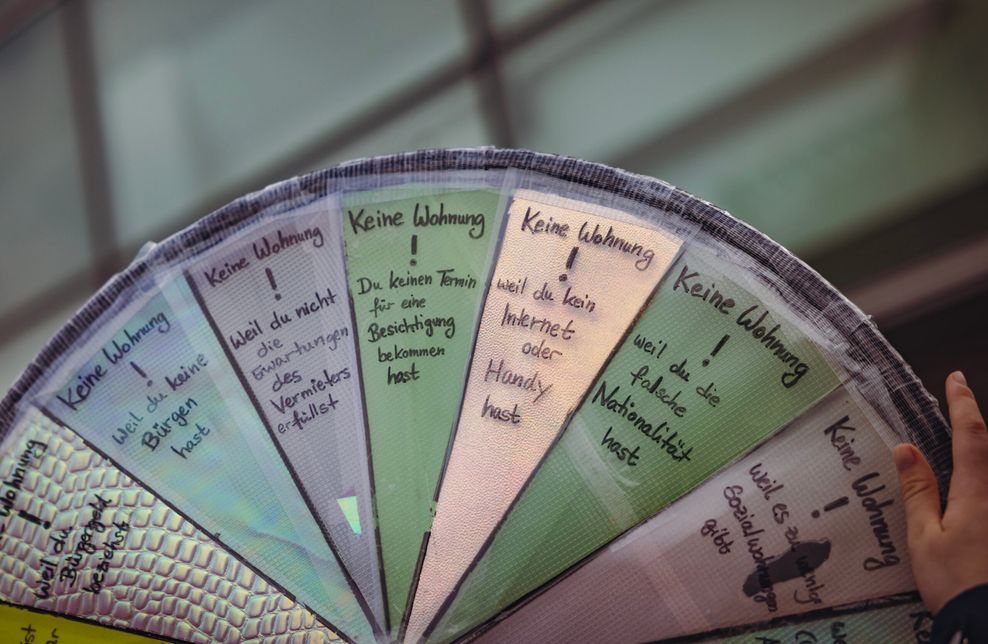 Wohnung
!
weil du
Bürgergeld
beziehst
Keine Wohnung
!
Weil du keine
Bürgen
hast
Keine Wohnung
!
Weil du nicht
die
Ewartungen
des
Vermieters
erfüllst
Keine Wohnung
!
Du keinen Termin
für eine
Besichtigung
bekommen
hast
Keine Wohnung
!
weil du kein
Internet
oder
Handy
hast
Keine Wohnung
!
weil du die
falsche
Nationalität
hast
Keine Wohnung
!
weil es zu wenig
Sozialwohnungen
gibt